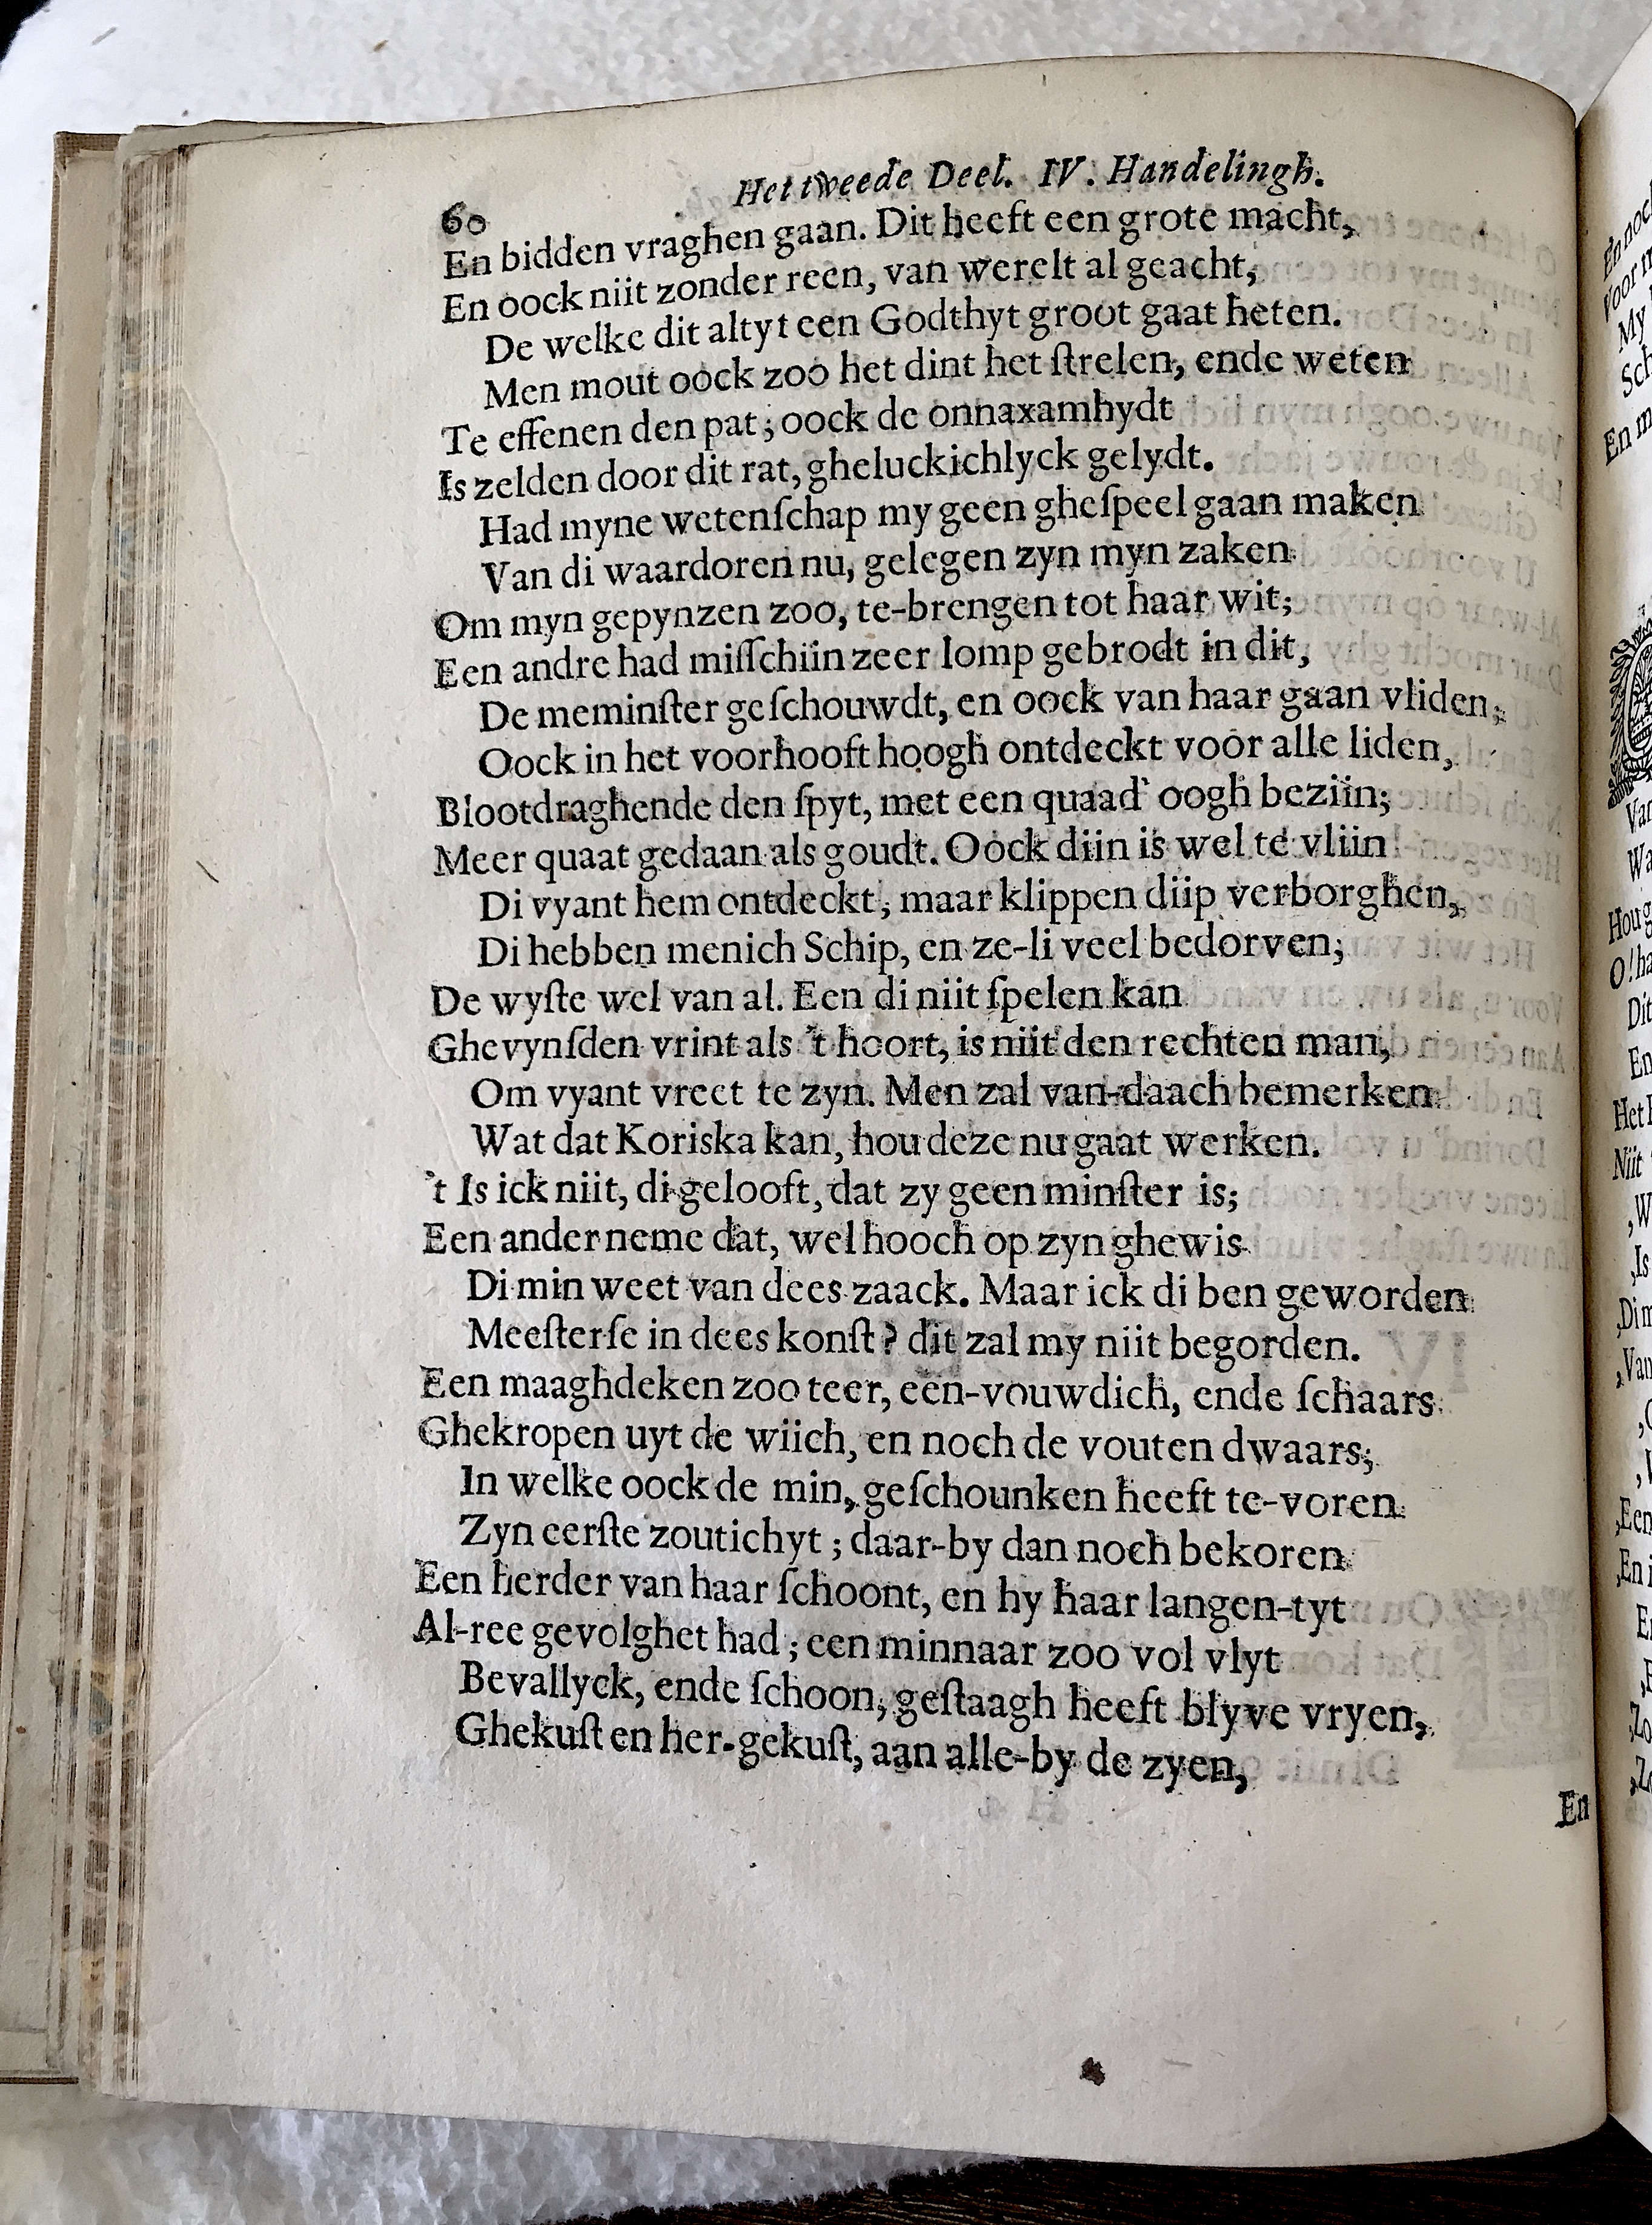 60 Het tweede Deel. IV. Handelingh.
En bidden vraghen gaan. Dit heeft een grote macht,
En oock niit zonder reen, van werelt al geacht,
De welke dit altyt een Godthyt groot gaat heten.
Men mout oock zoo het dint het ſtrelen, ende weten
Te effenen den pat; oock de onnaxamhydt
Is zelden door dit rat, gheluckichlyck gelydt.
Had myne wetenſchap my geen gheſpeel gaan maken
Van di waardoren nu, gelegen zyn myn zaken
Om myn gepynzen zoo, te-brengen tot haar wit;
Een andre had miſſchiin zeer lomp gebrodt in dit,
De meminſter geſchouwdt, en oock van haar gaan vliden,
Oock in het voorhooft hoogh ontdeckt voor alle liden,
Blootdraghende den ſpyt, met een quaad' oogh beziin;
Meer quaat gedaan als goudt. Oock diin is wel te vliin
Di vyant hem ontdeckt, maar klippen diip verborghen,
Di hebben menich Schip, en ze-li veel bedorven;
De wyſte wel van al. Een di niit ſpelen kan
Ghevynſden vrint als 't hoort, is niit den rechten man,
Om vyant vreet te zyn. Men zal van-daach bemerken
Wat dat Koriska kan, hou deze nu gaat werken.
't Is ick niit, di gelooft, dat zy geen minſter is;
Een ander neme dat, wel hooch op zyn ghewis
Di min weet van dees zaack. Maar ick di ben geworden
Meeſterſe in dees konſt? dit zal my niit begorden.
Een maaghdeken zoo teer, een-vouwdich, ende ſchaars
Ghekropen uyt de wiich, en noch de vouten dwaars;
In welke oock de min, geſchounken heeft te-voren
Zyn eerſte zoutichyt; daar-by dan noch bekoren
Een herder van haar ſchoont, en hy haar langen-tyt
Al-ree gevolghet had; een minnaar zoo vol vlyt
Bevallyck, ende ſchoon, geſtaagh heeft blyve vryen,
Ghekuſt en her-gekuſt, aan alle-by de zyen,
En